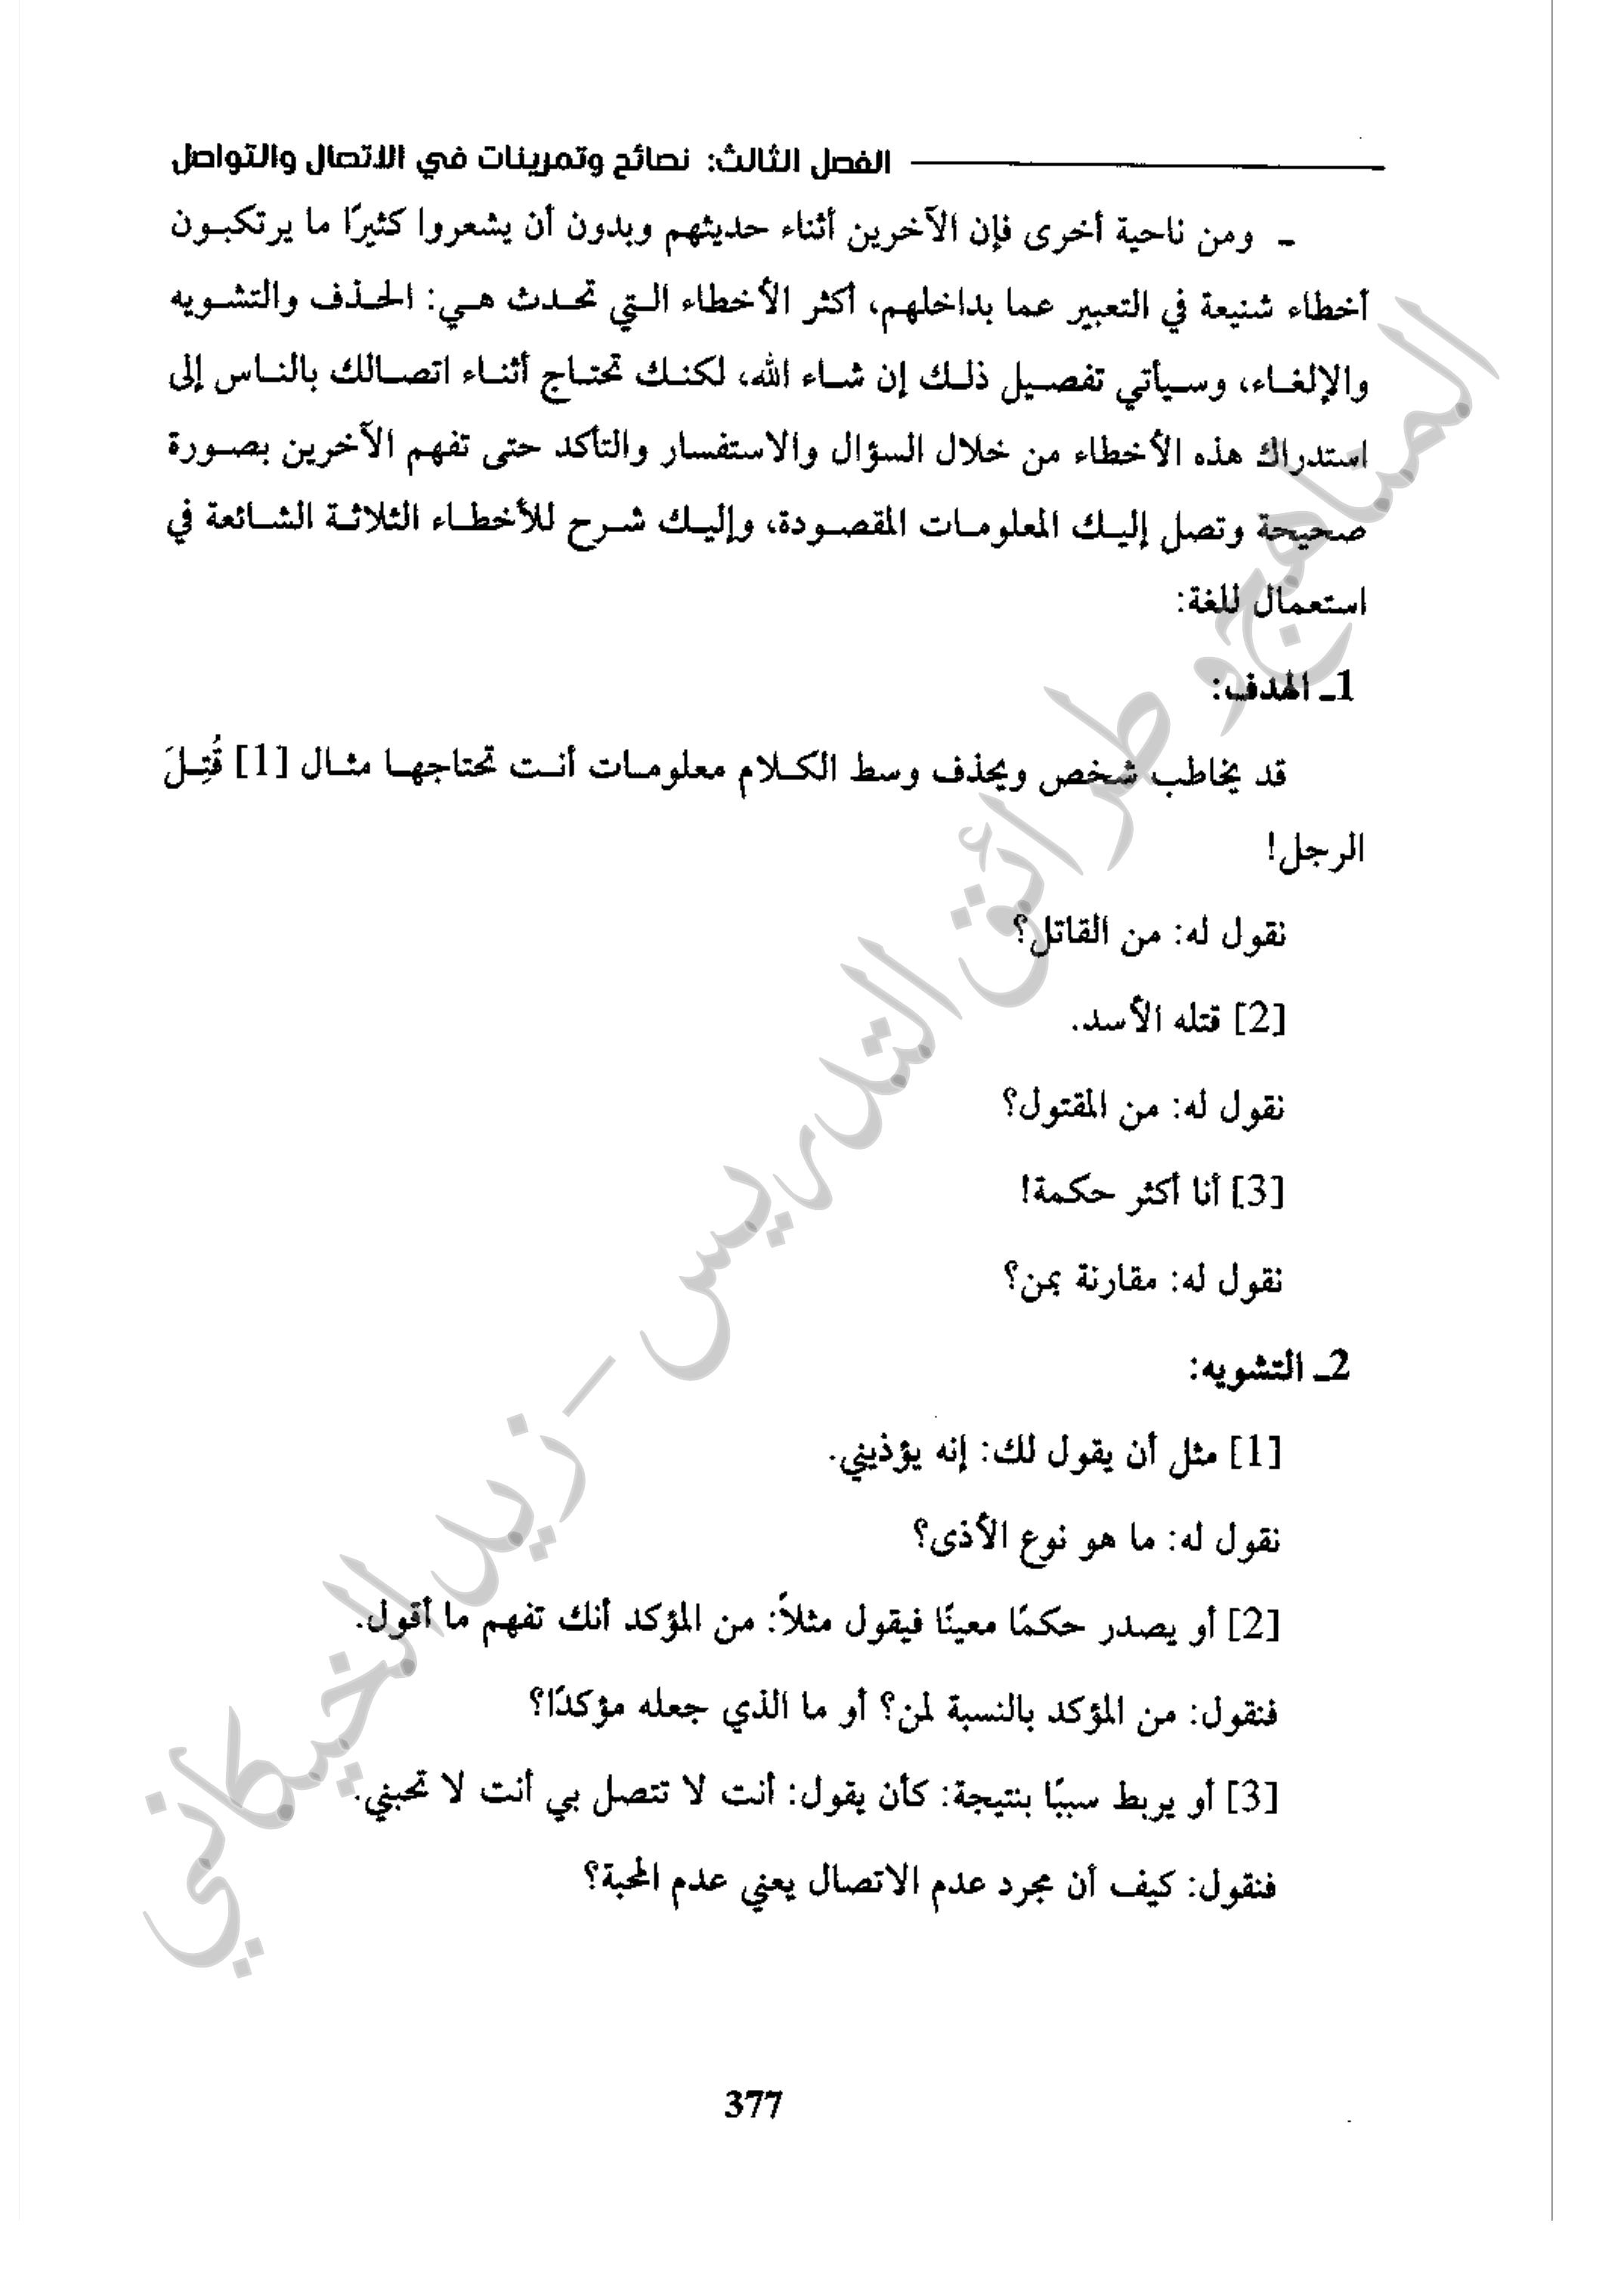 الفصل الثالث: نصائح وتمرينات في الاتصال والتواصل
ـ ومن ناحية أخرى فإن الآخرين أثناء حديثهم وبدون أن يشعروا كثيرًا ما يرتكبون
أخطاء شنيعة في التعبير عما بداخلهم، أكثر الأخطاء التي تحدث هي: الحذف والتشويه
والإلغاء، وسيأتي تفصيل ذلك إن شاء الله، لكنك تحتاج أثناء اتصالك بالناس إلى
استدراك هذه الأخطاء من خلال السؤال والاستفسار والتأكد حتى تفهم الآخرين بصورة
صحيحة وتصل إليك المعلومات المقصودة، وإليك شرح للأخطاء الثلاثة الشائعة في
استعمال للغة:
1ـ الهدف:
قد يخاطب شخص ويحذف وسط الكلام معلومات أنت تحتاجها مثال [1] قُتِلَ
الرجل!
نقول له: من القاتل؟
[2] قتله الأسد.
نقول له: من المقتول؟
[3] أنا أكثر حكمة!
نقول له: مقارنة بمن؟
2ـ التشويه:
[1] مثل أن يقول لك: إنه يؤذيني.
نقول له: ما هو نوع الأذى؟
[2] أو يصدر حكمًا معينًا فيقول مثلاً: من المؤكد أنك تفهم ما أقول.
فنقول: من المؤكد بالنسبة لمن؟ أو ما الذي جعله مؤكدًا؟
[3] أو يربط سببًا بنتيجة: كأن يقول: أنت لا تتصل بي أنت لا تحبني.
فنقول: كيف أن مجرد عدم الاتصال يعني عدم المحبة؟
377
المناهج وطرائق التدريس – زيد الخيكاني